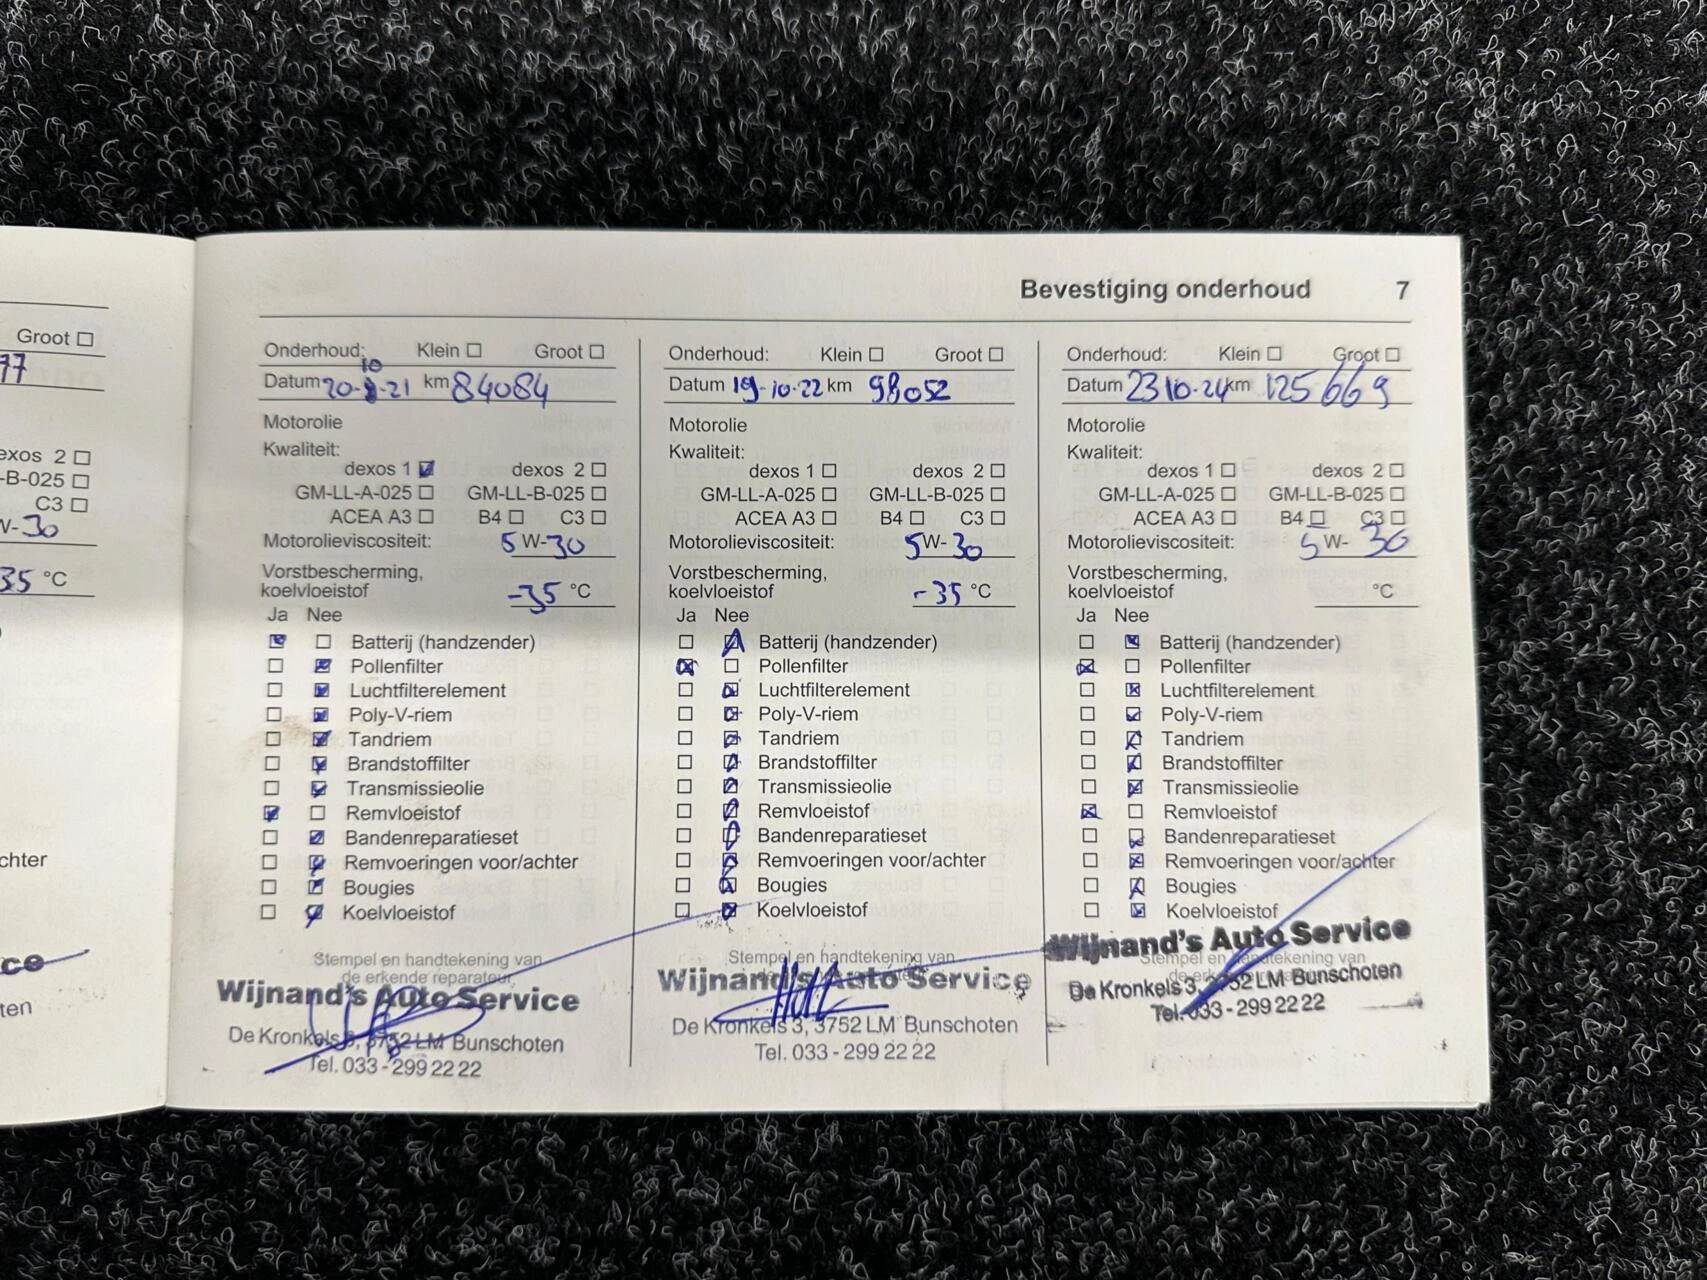 Groot ☐
77
exos 2 ☐
-B-025 ☐
C3 ☐
W-30
35 °C
chter
ce
ten
Bevestiging onderhoud 7
Onderhoud: Klein ☐ Groot ☐
10
Datum 20- -21 km 84084
Motorolie
Kwaliteit:
dexos 1 ☑ dexos 2 ☐
GM-LL-A-025 ☐ GM-LL-B-025 ☐
ACEA A3 ☐ B4 ☐ C3 ☐
Motorolieviscositeit: 5 W-30
Vorstbescherming,
koelvloeistof -35 °C
Ja Nee
☑ ☐ Batterij (handzender)
☐ ☑ Pollenfilter
☐ ☑ Luchtfilterelement
☐ ☑ Poly-V-riem
☐ ☑ Tandriem
☐ ☑ Brandstoffilter
☐ ☑ Transmissieolie
☑ ☐ Remvloeistof
☐ ☑ Bandenreparatieset
☐ ☑ Remvoeringen voor/achter
☐ ☑ Bougies
☐ ☑ Koelvloeistof
Stempel en handtekening van
de erkende reparateur
Wijnand's Auto Service
De Kronkels 3, 3752 LM Bunschoten
Tel. 033 - 299 22 22
Onderhoud: Klein ☐ Groot ☐
Datum 19-10-22 km 98052
Motorolie
Kwaliteit:
dexos 1 ☐ dexos 2 ☐
GM-LL-A-025 ☐ GM-LL-B-025 ☐
ACEA A3 ☐ B4 ☐ C3 ☐
Motorolieviscositeit: 5 W-30
Vorstbescherming,
koelvloeistof -35 °C
Ja Nee
☐ ☑ Batterij (handzender)
☒ ☐ Pollenfilter
☐ ☑ Luchtfilterelement
☐ ☑ Poly-V-riem
☐ ☑ Tandriem
☐ ☑ Brandstoffilter
☐ ☑ Transmissieolie
☐ ☑ Remvloeistof
☐ ☑ Bandenreparatieset
☐ ☑ Remvoeringen voor/achter
☐ ☑ Bougies
☐ ☒ Koelvloeistof
Stempel en handtekening van
Wijnand's Auto Service
De Kronkels 3, 3752 LM Bunschoten
Tel. 033 - 299 22 22
Onderhoud: Klein ☐ Groot ☐
Datum 23 10-24 km 125669
Motorolie
Kwaliteit:
dexos 1 ☐ dexos 2 ☐
GM-LL-A-025 ☐ GM-LL-B-025 ☐
ACEA A3 ☐ B4 ☐ C3 ☐
Motorolieviscositeit: 5 W- 30
Vorstbescherming,
koelvloeistof °C
Ja Nee
☐ ☒ Batterij (handzender)
☒ ☐ Pollenfilter
☐ ☒ Luchtfilterelement
☐ ☑ Poly-V-riem
☐ ☒ Tandriem
☐ ☒ Brandstoffilter
☐ ☒ Transmissieolie
☒ ☐ Remvloeistof
☐ ☑ Bandenreparatieset
☐ ☒ Remvoeringen voor/achter
☐ ☒ Bougies
☐ ☑ Koelvloeistof
Stempel en handtekening van
Wijnand's Auto Service
De Kronkels 3, 3752 LM Bunschoten
Tel. 033 - 299 22 22